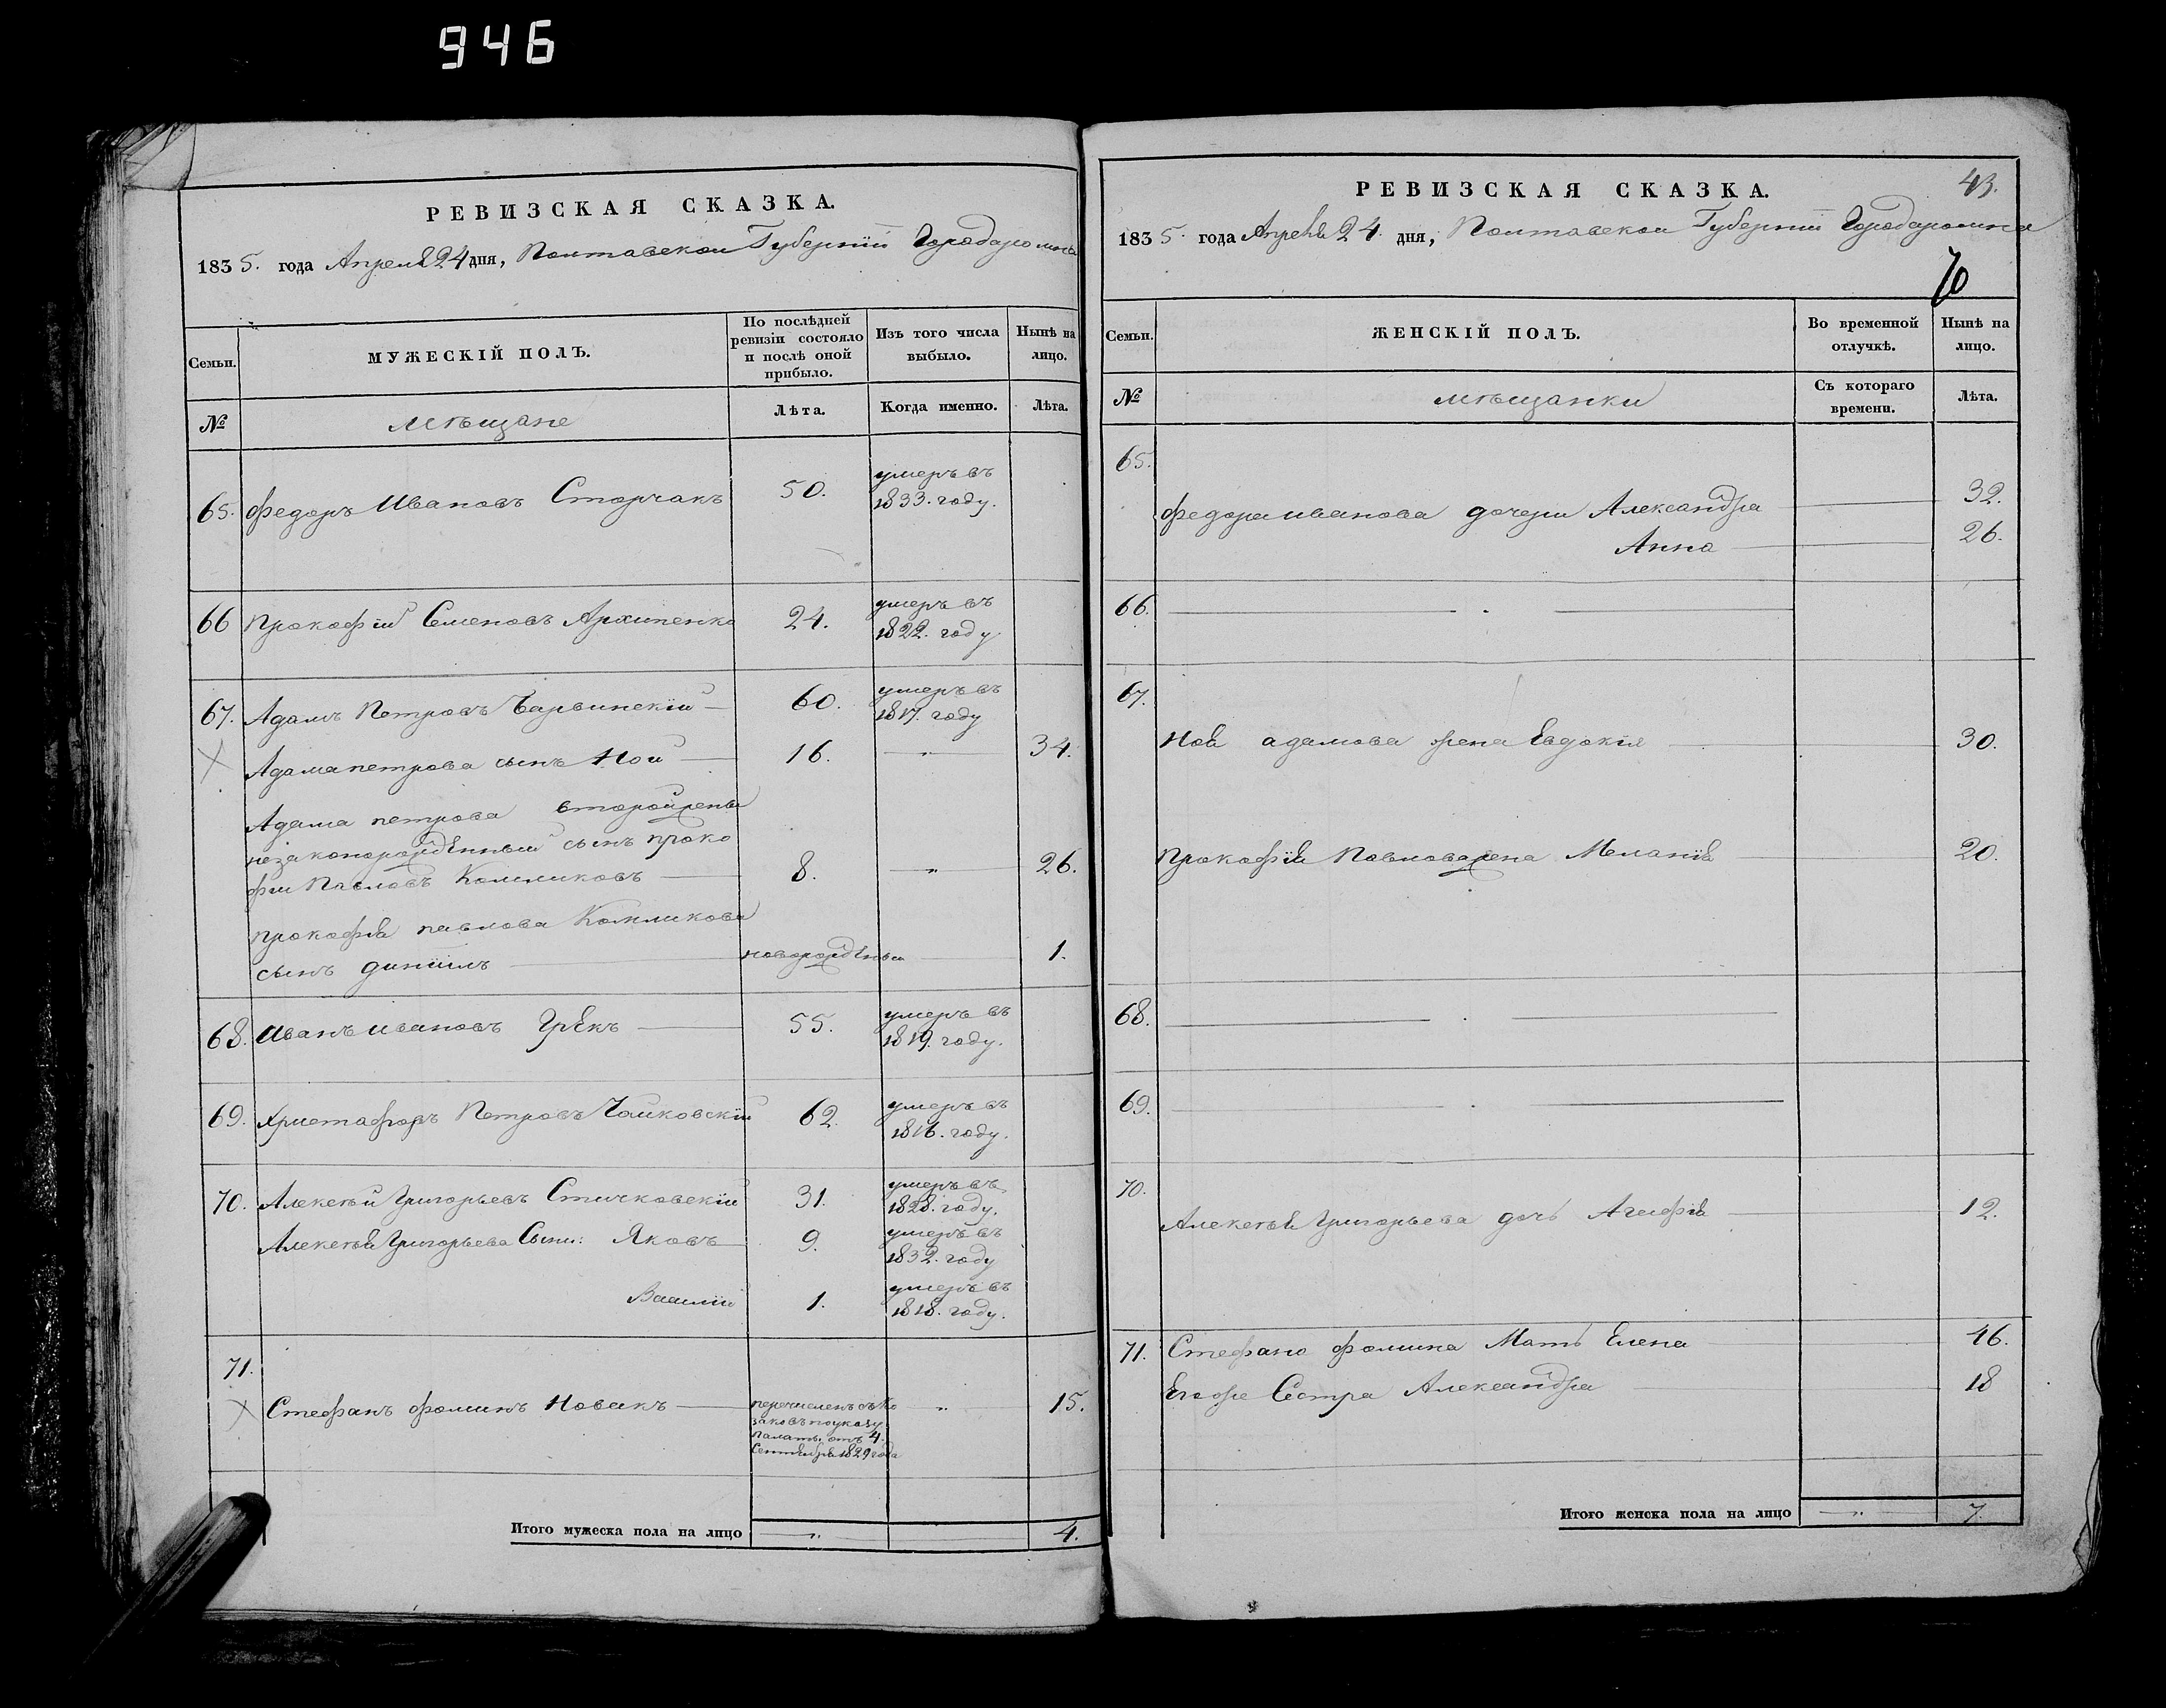 946
РЕВИЗСКАЯ СКАЗКА.
1835. года Апреля 24 дня, Полтавской Губернии Города Ромна
Семьи.
МУЖЕСКІЙ ПОЛЪ.
По послѣдней ревизіи состояло и послѣ оной прибыло.
Изъ того числа выбыло.
Нынѣ на лицо.
№
мѣщане
Лѣта.
Когда именно.
Лѣта.
65. Федоръ Ивановъ Сторчакъ 50. умеръ въ
1833. году.
66 Прокофій Семеновъ Архипенко 24. умеръ въ
1822. году
67. Адамъ Петровъ Чарвинскій 60. умеръ въ
1817. году
Адама петрова сынъ Ной 16. „ 34.
Адама петрова второй жены
незаконорожденный сынъ проко
фий Павловъ Комликовъ 8. „ 26.
прокофія павлова Комликова
сынъ даніілъ новорожденый 1.
68. Иванъ ивановъ Грекъ 55. умеръ въ
1819. году.
69. Христафоръ Петровъ Чайковскій 62. умеръ въ
1816. году.
70. Алексѣй Григорьевъ Стичковскій 31. умеръ въ
1828. году.
Алексѣя Григорьева Сыны: Яковъ 9. умеръ въ
1832. году
Василій 1. умеръ въ
1818. году.
71.
Стефанъ фоминъ Новакъ перечисленъ съ Ко
заковъ по указу
Палаты отъ 4.
Сентября 1829 года
„ 15.
Итого мужеска пола на лицо „ 4.
РЕВИЗСКАЯ СКАЗКА.
43.
1835. года Апреля 24. дня, Полтавской Губернии Города Ромна
70
Семьи.
ЖЕНСКІЙ ПОЛЪ.
Во временной отлучкѣ.
Нынѣ на лицо.
№
мѣщанки
Съ котораго времени.
Лѣта.
65.
Федора иванова дочери Александра 32.
Анна 26.
66.
67.
Ноя адамова жена Евдокія 30.
Прокофія Павлова жена Меланія 20.
68.
69.
70.
Алексѣя Григорьева дочь Агафія 12.
71. Стефана фомина Мать Елена 46.
Егоже Сестра Александра 18
Итого женска пола на лицо „ 7.